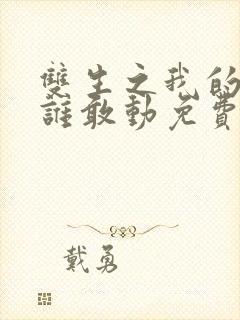 雙生之我的
誰敢動免費
戴勇